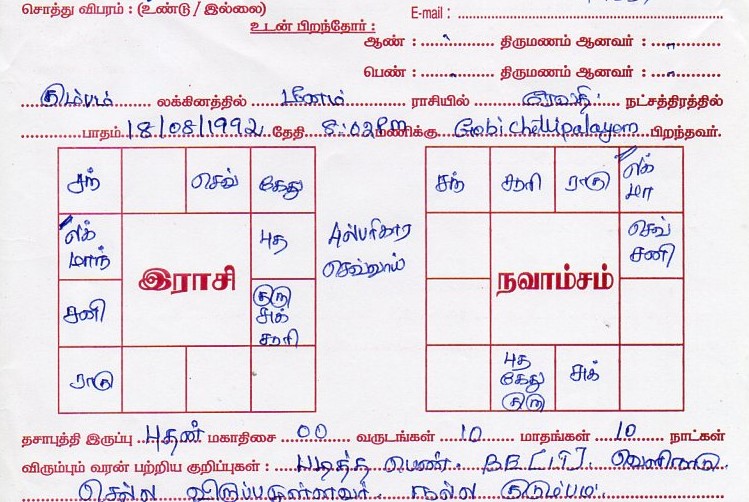 சொத்து விபரம் : (உண்டு / இல்லை)
E-mail :
உடன் பிறந்தோர் :
ஆண் : திருமணம் ஆனவர் :
பெண் : திருமணம் ஆனவர் :
கும்பம் லக்கினத்தில் மீனம் ராசியில் ரேவதி நட்சத்திரத்தில்
பாதம் 18/08/1992 தேதி 8:02PM மணிக்கு Gobichettipalayam பிறந்தவர்.
சந் செவ் கேது
லக் மாந் புத
இராசி
சனி குரு சுக் சூரி
ராகு
புல்பரிகார செவ்வாய்
சந் சூரி ராகு லக் மா
செவ் சனி
நவாம்சம்
புத கேது குரு சுக்
தசாபுத்தி இருப்பு புதன் மகாதிசை 00 வருடங்கள் 10 மாதங்கள் 10 நாட்கள்
விரும்பும் வரன் பற்றிய குறிப்புகள் : படித்த பெண். B.E (IT). வெளிநாடு
செல்ல விருப்பமுள்ளவர். நல்ல குடும்பம்.